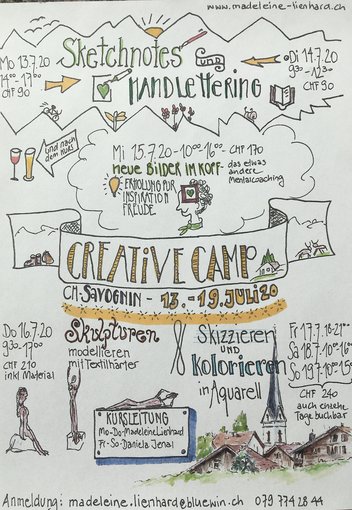 www.madeleine-lienhard.ch
Mo 13.7.20
14⁰⁰-17⁰⁰
CHF 90
Sketchnotes
und
HANDLETTERING
Di 14.7.20
9³⁰-12³⁰
CHF 90
und nach
dem Kurs!
Mi 15.7.20-10⁰⁰-16⁰⁰- CHF 170
neue BILDER IM KOPF-
das etwas
andere
Mentalcoaching
ERHOLUNG FÜR
INSPIRATION
FREUDE
CREATIVE CAMP
CH-SAVOGNIN - 13.-19.JULI 20
Do 16.7.20
9³⁰-17⁰⁰
CHF 210
inkl Material
Skulpturen
modellieren
mit Textilhärter
&
Skizzieren
UND
Kolorieren
in Aquarell
Fr 17.7.18-21⁰⁰
Sa 18.7-10⁰⁰-16⁰⁰
So 19.7-10⁰⁰-15⁰⁰
CHF 240
auch einzelne
Tage buchbar
KURSLEITUNG
Mo-Do-Madeleine Lienhard
Fr-So-Daniela Jenal
Anmeldung: madeleine.lienhard@bluewin.ch 079 774 28 44